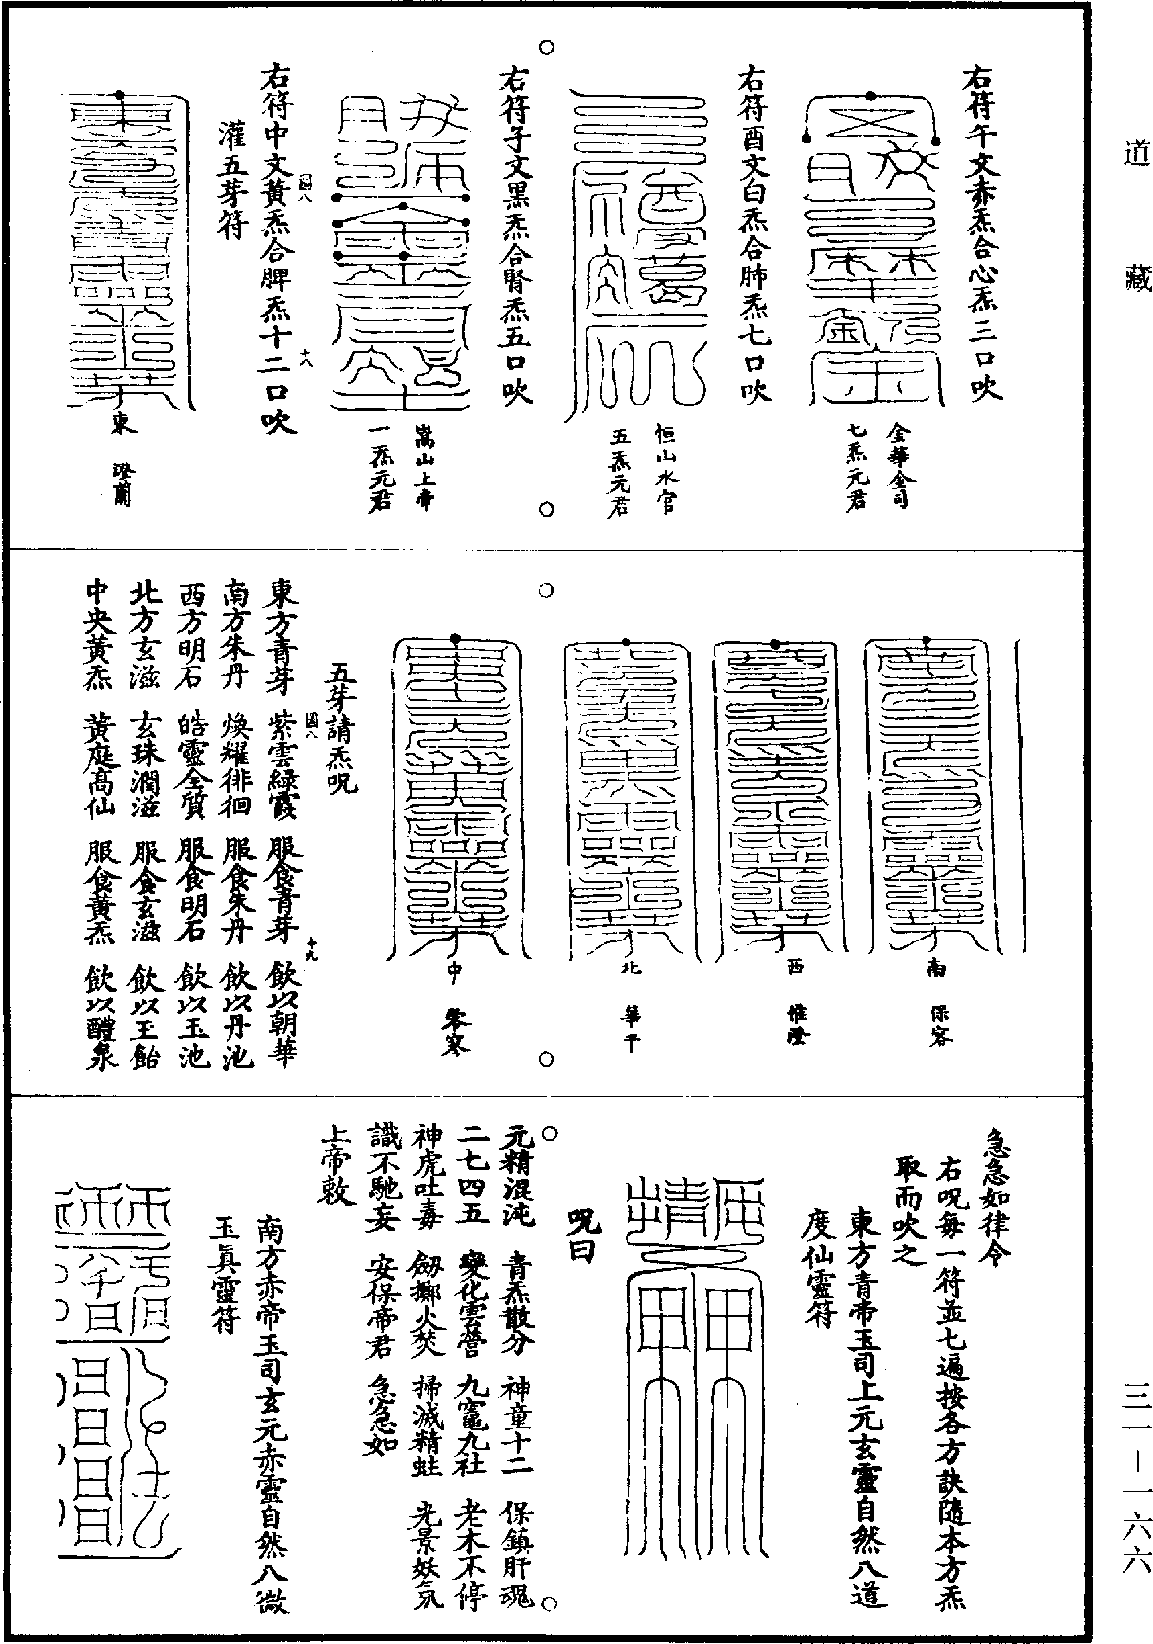 道藏
三一—一六六
右符午文赤炁合心炁三口吹
金華金司
七炁元君
右符酉文白炁合肺炁七口吹
恒山水官
五炁元君
右符子文黑炁合腎炁五口吹
嵩山上帝
一炁元君
右符中文黃炁合脾炁十二口吹
灌五芽符
東
澄蘭
南
保容
西
惟澄
北
華平
中
五芽請炁呪
東方青芽 紫雲綠霞 服食青芽 飲以朝華
南方朱丹 煥耀徘徊 服食朱丹 飲以丹池
西方明石 皓靈全質 服食明石 飲以玉池
北方玄滋 玄珠潤滋 服食玄滋 飲以玉飴
中央黃炁 黃庭高仙 服食黃炁 飲以醴泉
急急如律令
右呪每一符並七遍按各方訣隨本方炁
取而吹之
東方青帝玉司上元玄靈自然八道
度仙靈符
呪曰
元精混沌 青炁散分 神童十二 保鎮肝魂
二七四五 變化雲營 九竈九社 老木不停
神虎吐毒 劒擲火焚 掃滅精蛀 光景妖氛
識不馳妄 安保帝君 急急如
上帝敕
南方赤帝玉司玄元赤靈自然八微
玉真靈符